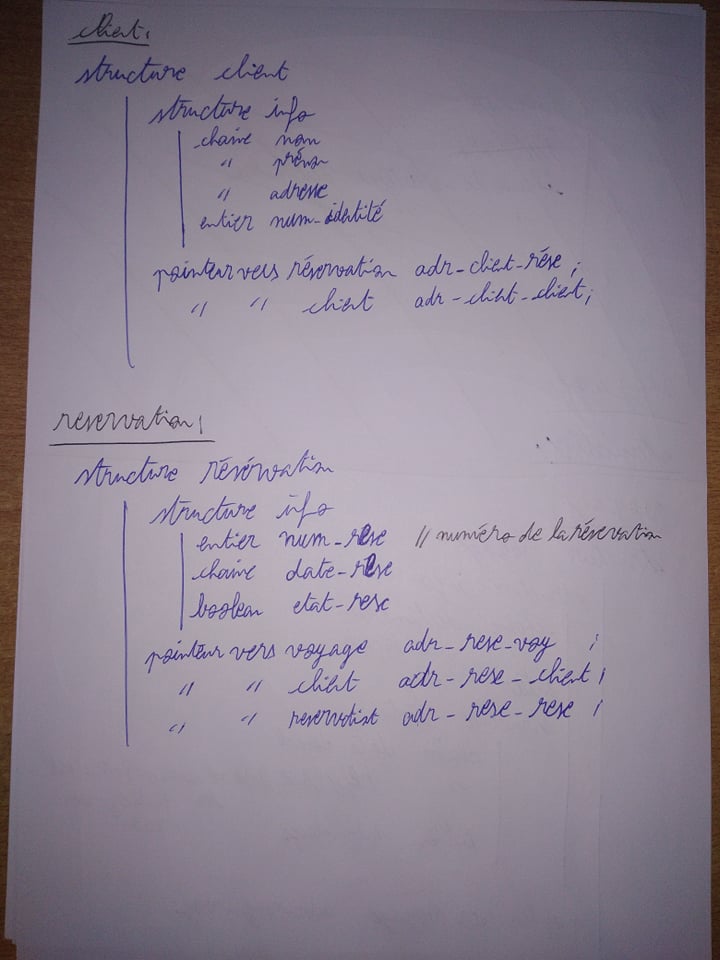 client:
structure client
structure info
chaine nom
" prénom
" adresse
entier num-identité
pointeur vers réservation adr-client-rése ;
" " client adr-client-client;
reservation:
structure réservation
structure info
entier num-rese // numéro de la réservation
chaine date-rese
boolean etat-rese
pointeur vers voyage adr-rese-voy ;
" " client adr-rese-client ;
" " adr-rese-rese ;